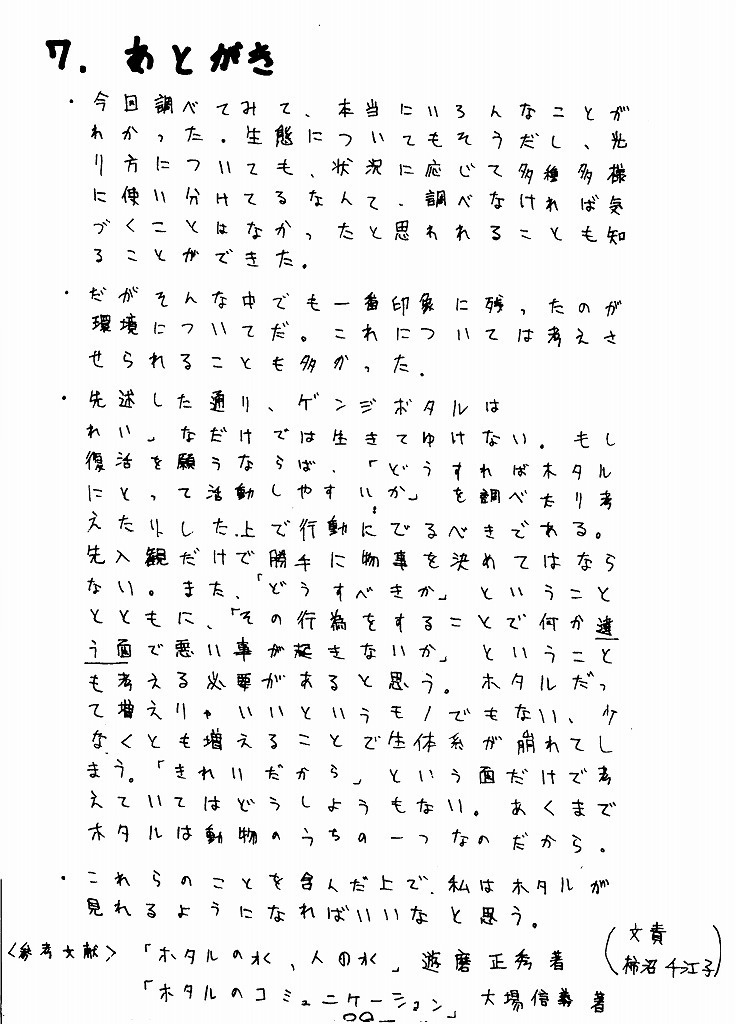 7. あとがき
・今回調べてみて、本当にいろんなことが
わかった。生態についてもそうだし、光
り方についても、状況に応じて多種多様
に使い分けてるなんて、調べなければ気
づくことはなかったと思われることも知
ることができた。
・だがそんな中でも一番印象に残ったのが
環境についてだ。これについては考えさ
せられることも多かった。
・先述した通り、ゲンジボタルは
れい」なだけでは生きてゆけない。もし
復活を願うならば、「どうすればホタル
にとって活動しやすいか」を調べたり考
えたりした上で行動にでるべきである。
先入観だけで勝手に物事を決めてはなら
ない。また、「どうすべきか」ということ
とともに、「その行為をすることで何か違
う面で悪い事が起きないか」ということ
も考える必要があると思う。ホタルだっ
て増えりゃいいというモノでもない、少
なくとも増えることで生体系が崩れてし
まう。「きれいだから」という面だけで考
えていてはどうしようもない。あくまで
ホタルは動物のうちの一つなのだから。
・これらのことを含んだ上で、私はホタルが
見れるようになればいいなと思う。
(文責
柿沼千江子)
〈参考文献〉「ホタルの水、人の水」遊磨正秀著
「ホタルのコミュニケーション」大場信義著